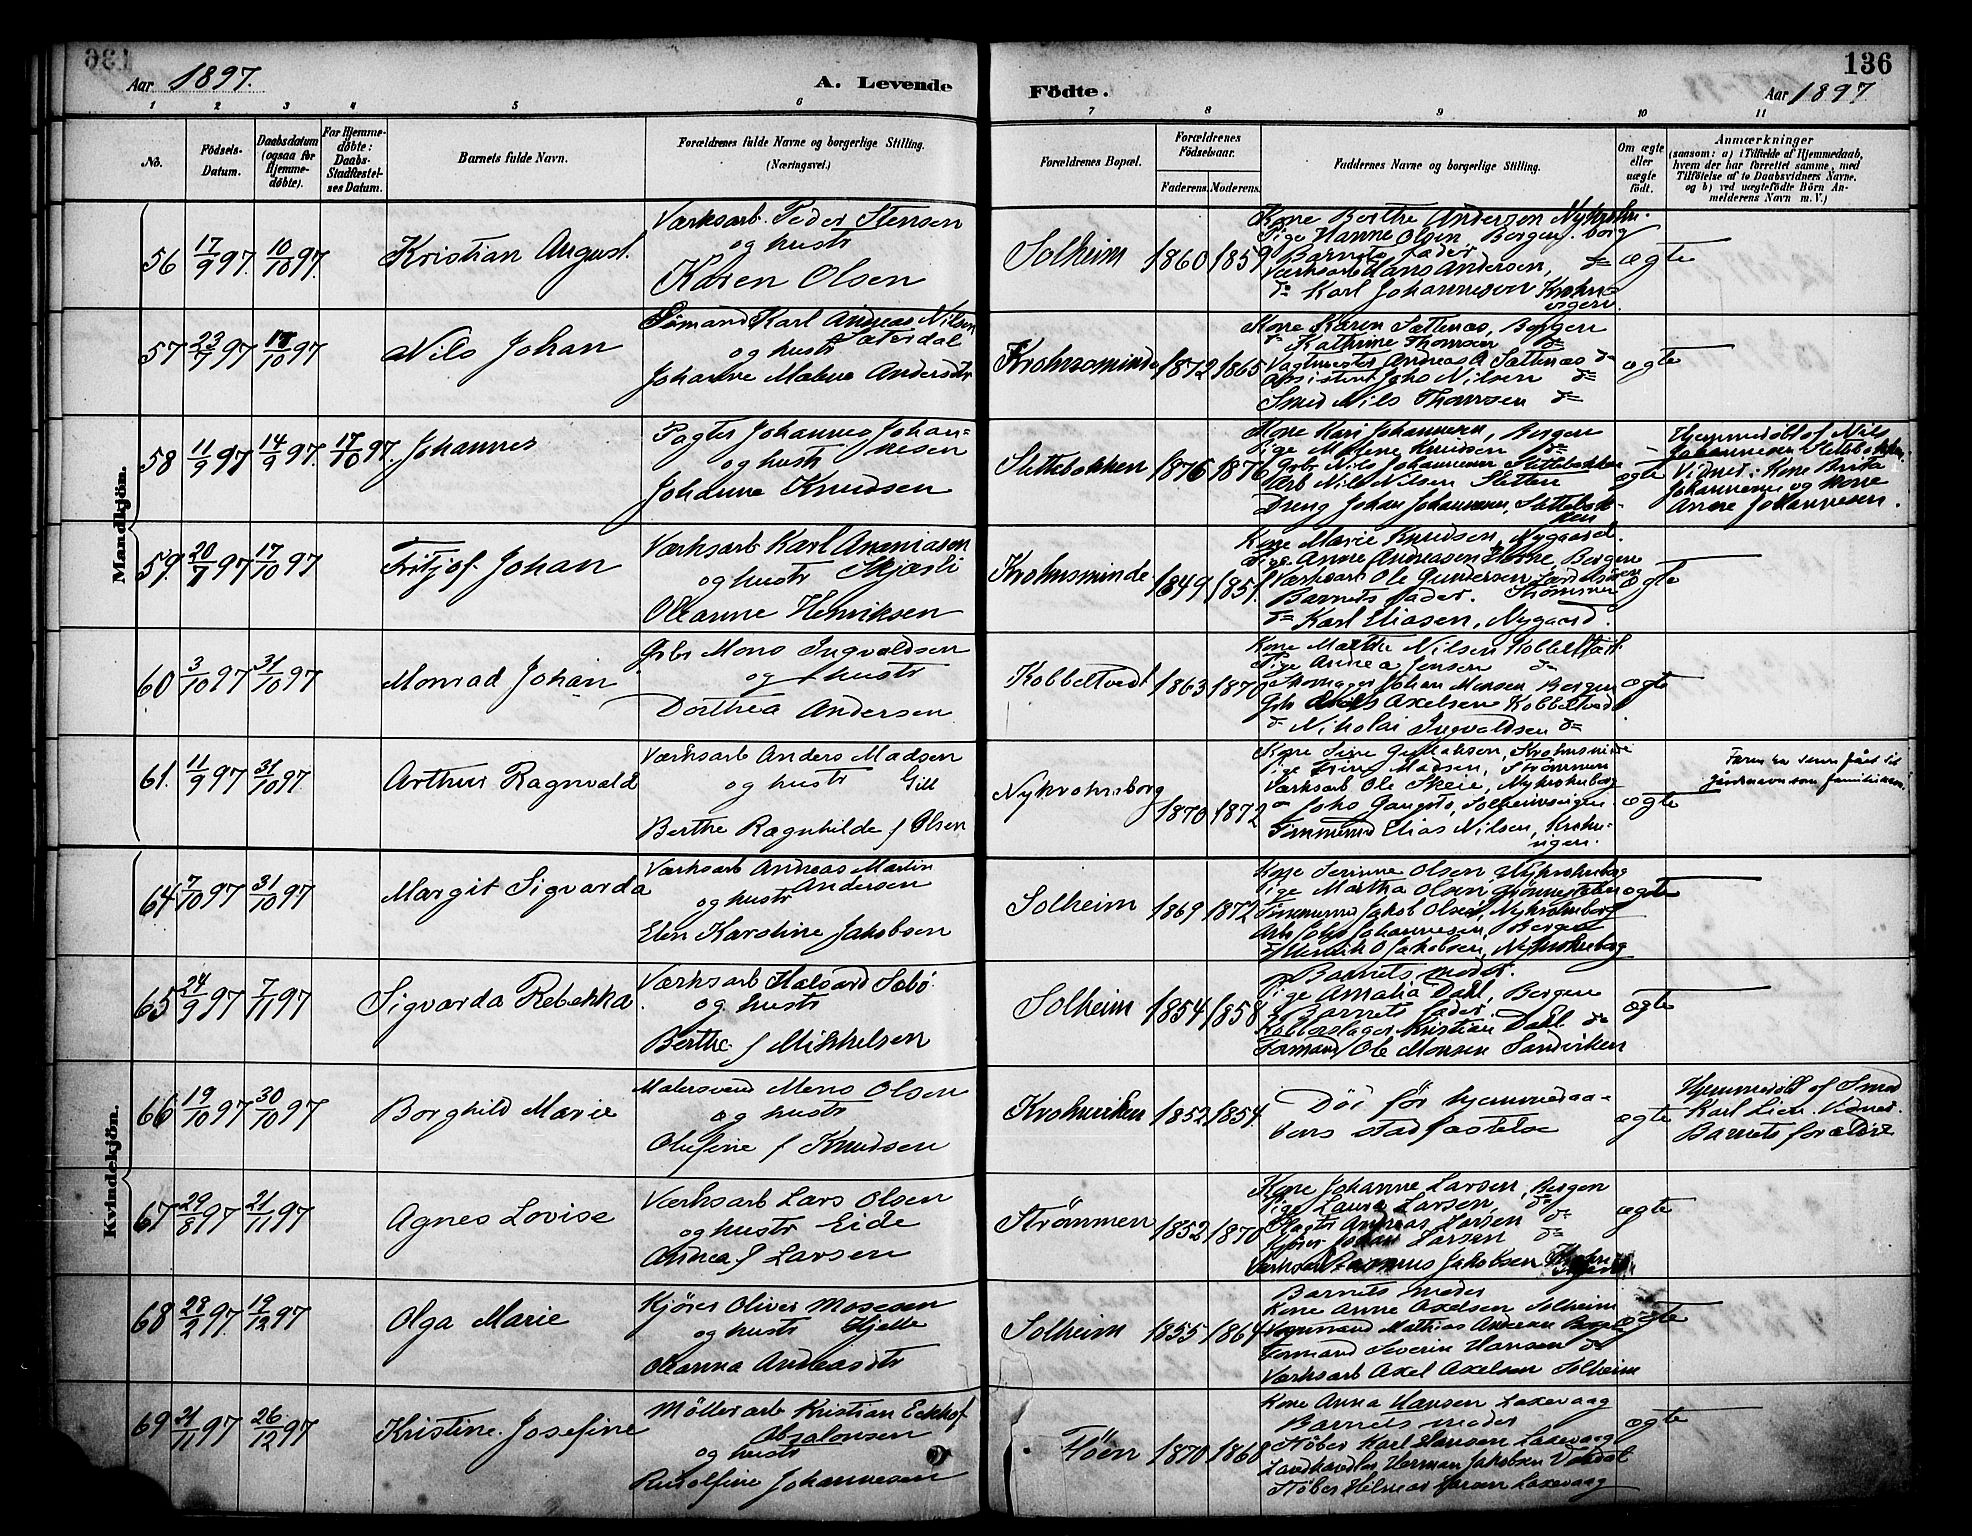 136
Aar 1897.
A. Levende
Födte.
136
Aar 1897
1 2 3 4 5 6 7 8 9 10 11
No.
Födsels-
Datum.
Daabsdatum
(ogsaa for
Hjemme-
døbte).
For Hjemme-
døbte:
Daabs-
Stadfæstel-
ses Datum.
Barnets fulde Navn.
Forældrenes fulde Navne og borgerlige Stilling.
(Næringsvei.)
Forældrenes Bopæl.
Forældrenes
Födselsaar.
Faderens. Moderens.
Faddernes Navne og borgerlige Stilling.
Om ægte
eller
uægte
født.
Anmærkninger
(saasom: a) i Tilfælde af Hjemmedaab,
hvem der har forrettet samme, med
Tilföielse af to Daabsvidners Navne.
og b) ved uægtefödte Börn An-
melderens Navn m. V.)
Mandkjön.
56 17/9 97. 10/10 97. Kristian August.
Værksarb. Peder Stensen
og hustr
Karen Olsen
Solheim 1860 1859
Kone Berthe Andersen Nykrohn-
Pige Hanne Olsen, Bergen. borg
Barnets Fader
Værksarb Hans Andersen, do
do Karl Johannesen Krohn-
engen
ægte
57 97 10 97 Nils Johan
Sømand Karl Andreas Nilsen
og hustr Sætersdal
Johanne Malene Andersdtr
Krohnsminde 1872 1865
Kone Karen Sættenæs, Bergen
do Kathrine Thomsen do
Vagtmester Andreas A Sættenæs do
Assistent Johs Nilsen do
Smed Nils Thomsen do
ægte
58 11/9 97 14/9 97. 17/10 97. Johannes
Pagter Johannes Johan=
og hustr nesen
Johanne Knudsen
Slettebakken 1876 1876
Kone Kari Johannesen, Bergen
Pige Malene Knudsen do
Grbr Nils Johannesen Slettebakken
Arb Nils Nilsen Sletten
Dreng Johan Johannesen, Slettebak-
ken
ægte
Hjemmedøbt af Nils
Johannesen Slettebakken.
Vidner: Kone Brita
Johannesen og Kone
Anne Johannesen.
59. 20 97 17/10 97 Fritjof Johan
Værksarb Karl Ananiasen
og hustr Skjæsli
Oleanne Henriksen
Krohnsminde 1849 1851
Kone Marie Knudsen, Nygaard.
Pige Anne Andreasen Horne, Bergen
Værksarb Ole Gundersen
Barnets fader.
do Karl Eliasen, Nygaard.
ægte
60 3/10 97 31/10 97 Monrad Johan
Grbr Mons Ingvaldsen
og hustr
Dorthea Andersen
Kobbeltvedt 1863 1870
Kone Martha Nilsen Kobbeltvedt
Pige Anne a Jensen do
Skomager Johan Monsen Bergen
Grbr Nils Axelsen Kobbeltvedt
do Nikolai Ingvaldsen do
ægte
61. 11/9 97 31/10 97 Arthur Ragnvald
Værksarb Anders Madsen
og hustr Gill
Berthe Ragnhilde f Olsen
Nykrohnsborg 1870 1872
Kone Sine Gulliksen, Krohnsminde
Pige Trine Madsen, Strømmen
Værksarb Ole Skeie, Nykrohnborg
do Johs Gangstø, Solheimsvigen
Tømmermd Elias Nilsen, Krohn-
vigen.
ægte
Faren har senere faaet sit
gaardsnavn som familienavn.
Kvindekjön.
64 7/10 97 31/10 97 Margit Sigvarda
Værksarb Andreas Martin
og hustr Andersen
Elen Karoline Jakobsen
Solheim 1869 1872
Kone Serine Olsen Nykrohnborg
Pige Martha Olsen
Tømmermd Jakob Olsen, Nykrohnborg
Arb Johs Johannesen, Bergen
Henrik O Jakobsen, Nykrohnborg
ægte
65 24/9 97 7/11 97 Sigvarda Rebekka
Værksarb Halvard Sæbø.
og hustr
Berthe f Mikkelsen
Solheim 1854 1858
Barnets moder.
Pige Amalia Dahl, Bergen
Barnets fader.
Kobberslager Kristian Dahl do
Formand Ole Monsen Sandviken
ægte
66 19/10 97 30/10 97 Borghild Marie
Malersvend Mons Olsen
og hustr
Olufine f Knudsen
Krohnviken 1852 1854
Døi før hjemmedaa-
bens stadfæstelse
ægte
Hjemmedøbt af Smed
Karl Lien. Vidner.
Barnets forældre
67 29/8 97 21/11 97 Agnes Lovise
Værksarb Lars Olsen
og hustr Eide
Andrea f Larsen
Strømmen 1852 1870
Kone Johanne Larsen, Bergen
Pige Laura Larsen, do
Slagter Andreas Larsen do
Kjører Johan Larsen do
Værksarb Rasmus Jakobsen
ægte
68 28/2 97. 19/12 97 Olga Marie
Kjører Oliver Mosesen
og hustr Hjelle
Oleanna Andreasdtr
Solheim 1855 1864
Barnets moder
Kone Anne Axelsen Solheim
Vognmand Mathias Andersen Bergen
Formand Severin Hansen do
Værksarb Axel Axelsen Solheim
ægte
69 21/11 97 26/12 97 Kristine Josefine
Møllerarb Kristian Eckhof
og hustr Absalonsen
Rudolfine Johannesen
Fløen 1870 1868
Kone Anna Hansen Laxevaag
Barnets moder
Støber Karl Hansen Laxevaag
Landhandler Herman Jakobsen
Støber Hilmar Hansen Laxevaag
ægte